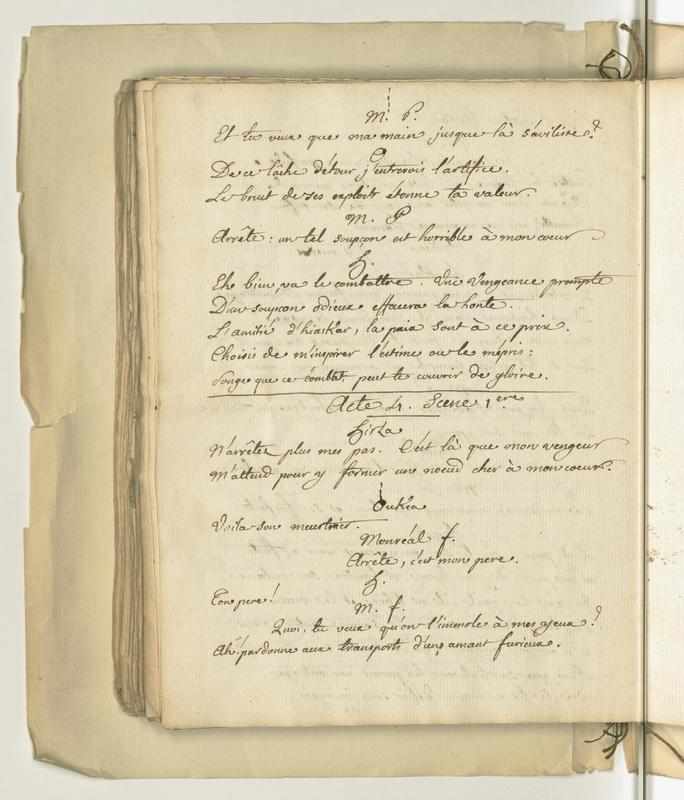 M. P.
Et tu veux que ma main jusque là s'avilisse?
De ce lâche détour j'entrevois l'artifice.
Le bruit de ses exploits étonne ta valeur.
M. P
Arrête: un tel soupçon est horrible à mon coeur
h.
Eh bien, va le combattre. Une vengeance prompte
D'un soupçon odieux effacera la honte.
L'amitié d'hiaskar, la paix sont à ce prix.
Choisis de m'inspirer l'estime ou le mépris:
Songe que ce combat peut te couvrir de gloire.
Acte 4. Scene 1.ere
hirza
N'arrêtez plus mes pas. C'est là que mon vengeur
M'attend pour y former un noeud cher à mon coeur.
Oukéa
Voila son meurtrier.
Monréal f.
Arrête, c'est mon pere.
h.
Ton pere!
M. f.
Quoi, tu veux qu'on l'immole à mes yeux?
Ah! pardonne aux transports d'un amant furieux.